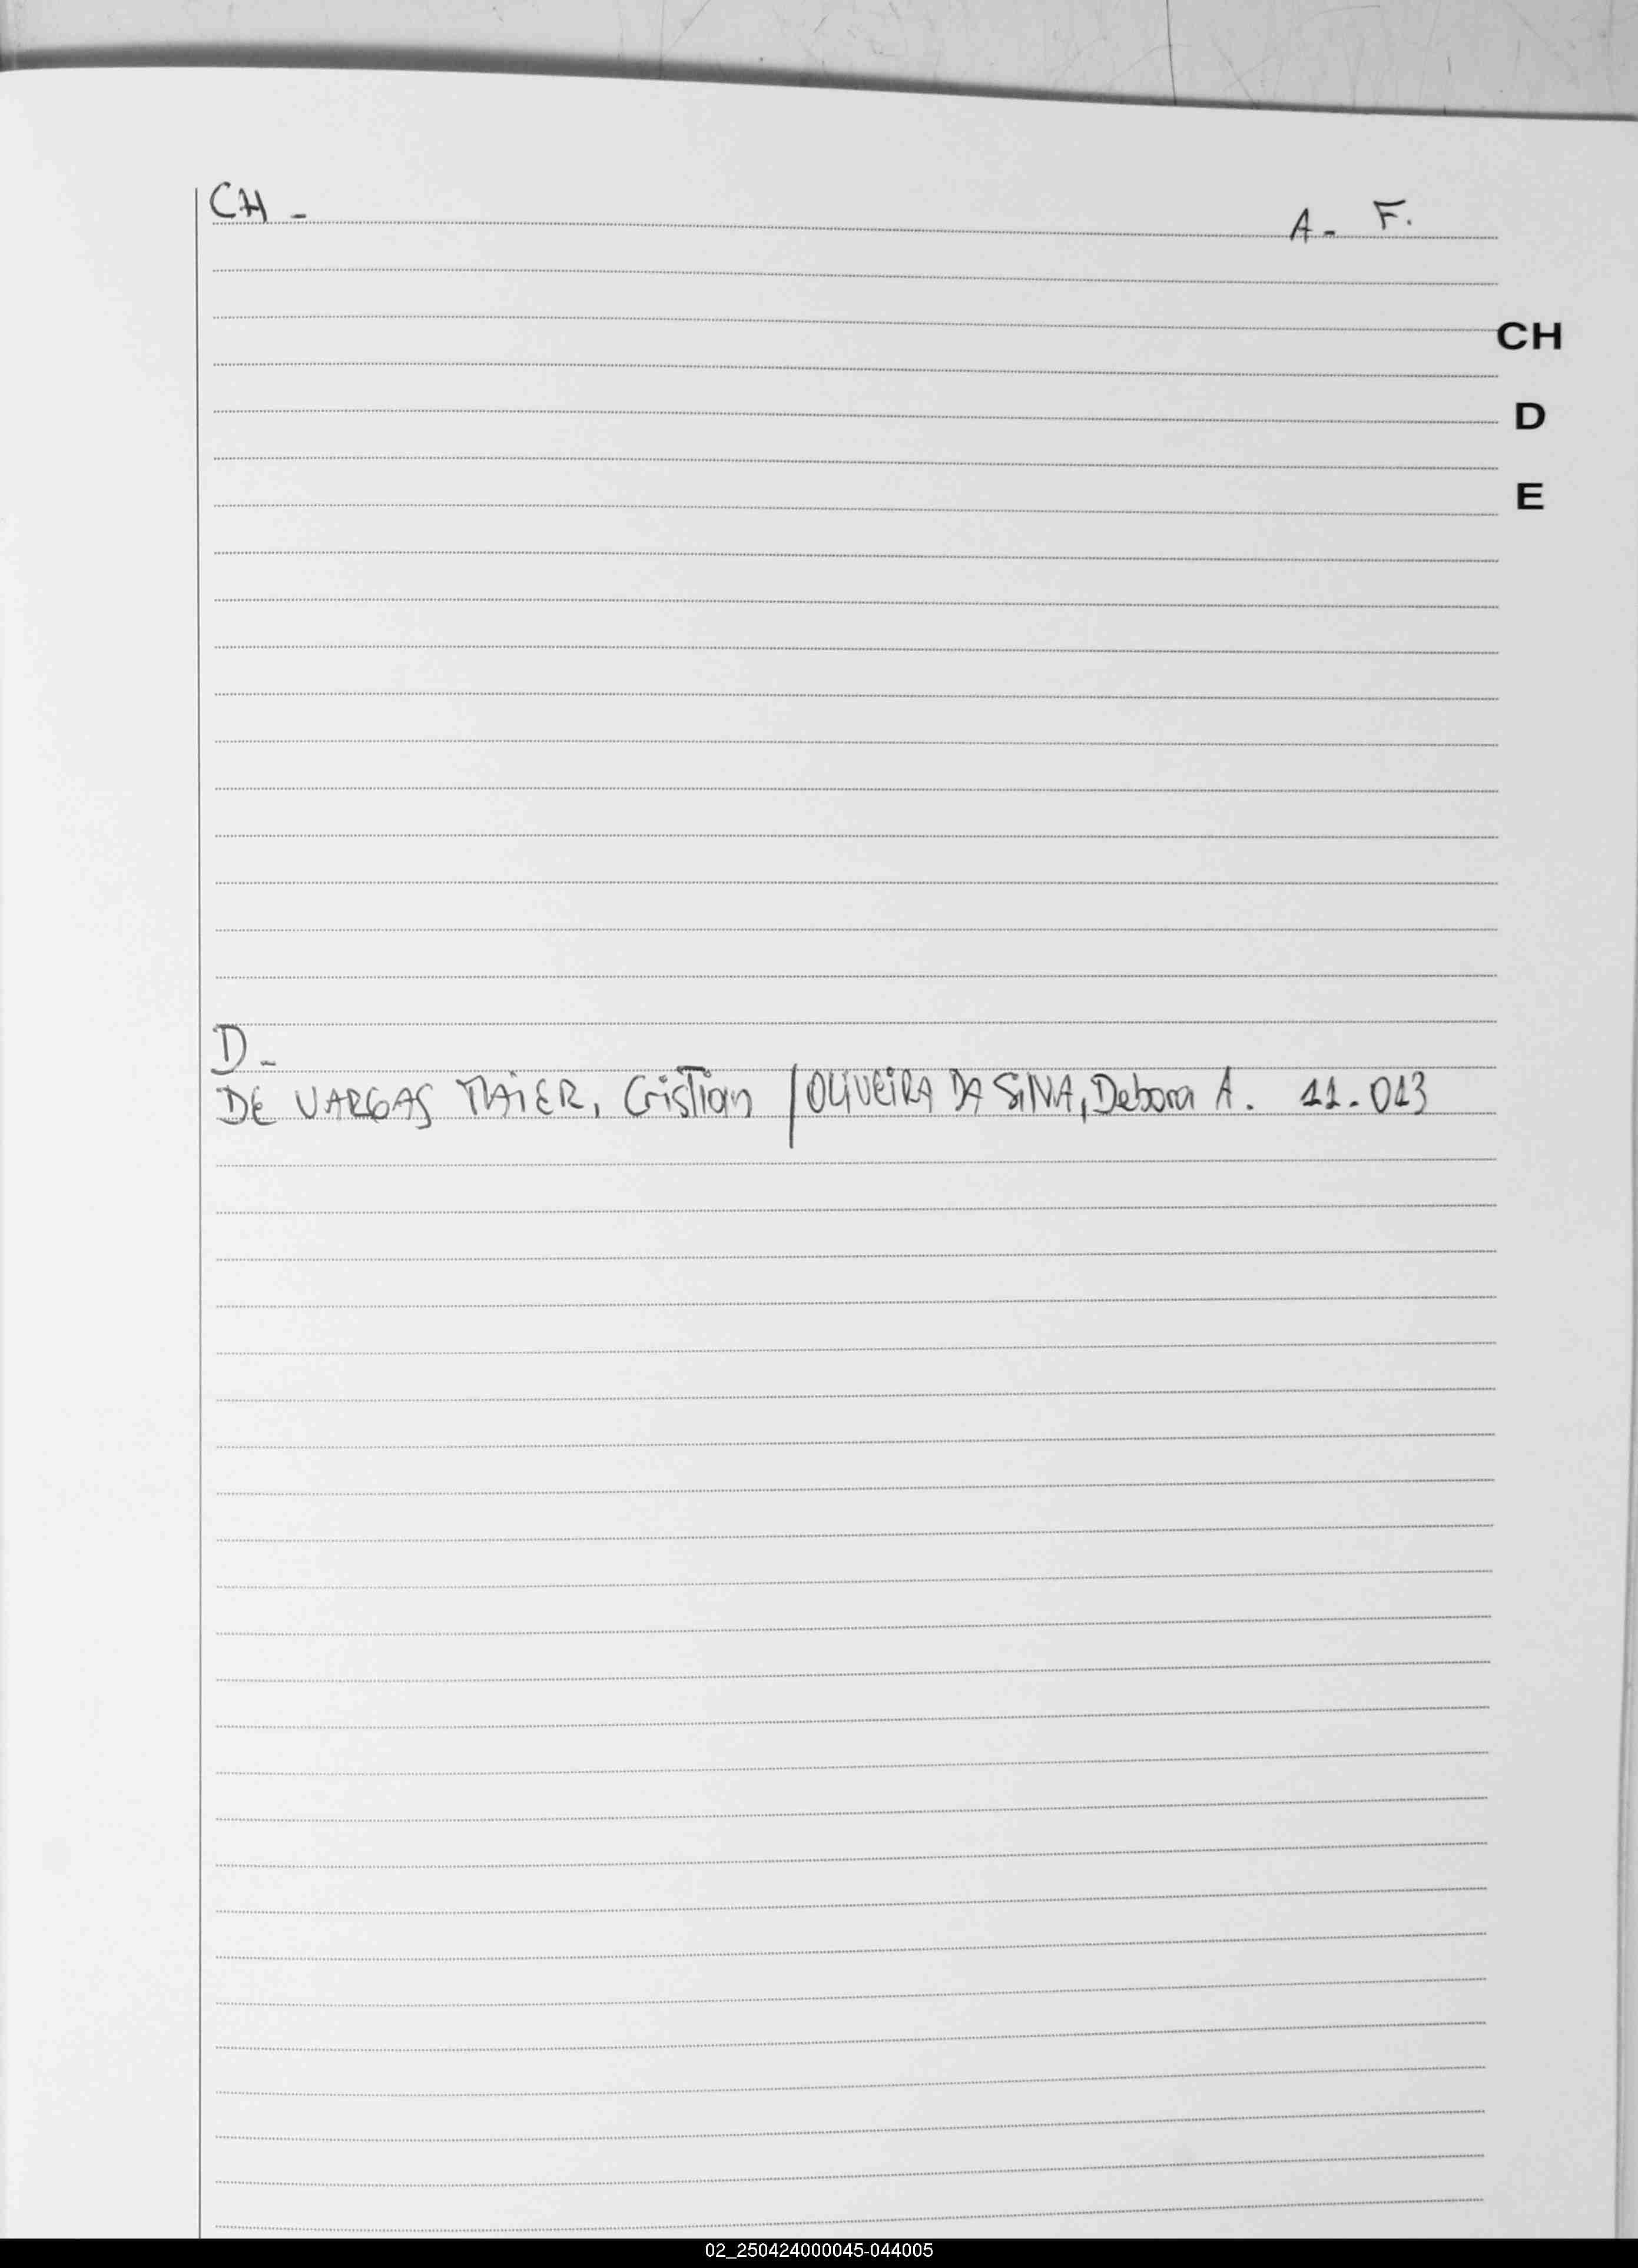 CH - A - F.
CH
D
E
D -
DE VARGAS MAIER, Cristian / OLIVEIRA DA SILVA, Debora A. 11-013
02_250424000045-044005